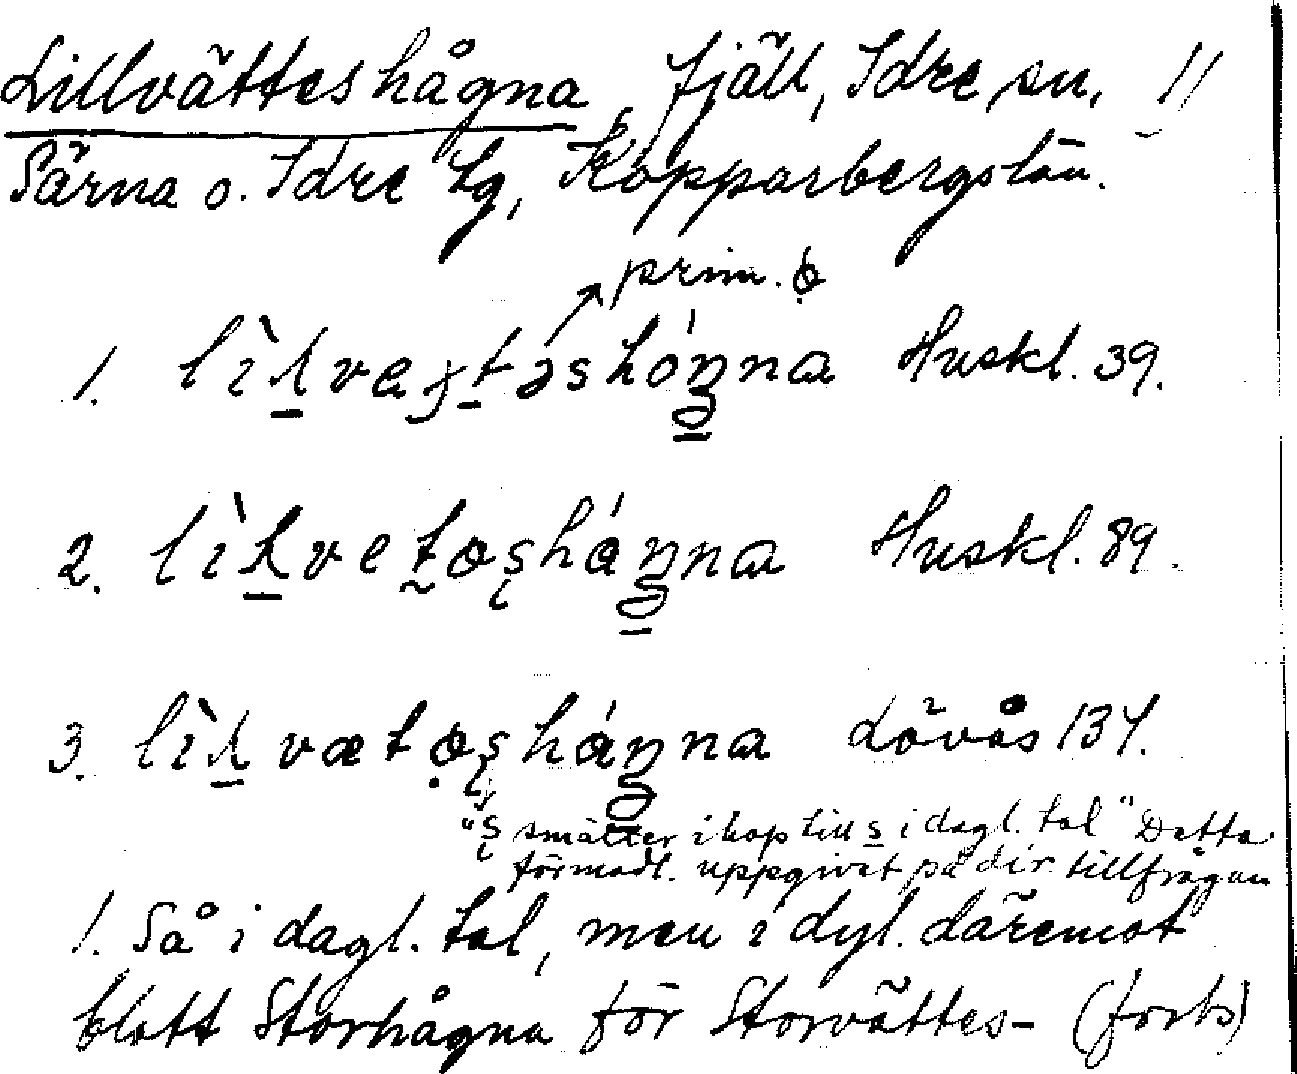 Lillvätteshågna, fjäll, Idre sn, //
Särna o. Idre tg, Kopparbergs län.
prim. ọ
1. Huskl. 39.
2. Huskl. 89.
3. Lövås 134.
"ş smälter ihop till s i dagl. tal" Detta
förmodl. uppgivet på dir. tillfrågan
1. Så i dagl. tal, men i dyl. däremot
blott Storhågna för Storvättes- (forts)